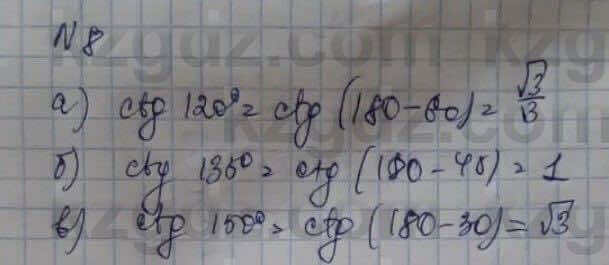 N 8
а) ctg 120° = ctg (180-60) = √3/3
б) ctg 135° = ctg (180-45) = 1
в) ctg 150° = ctg (180-30) = √3